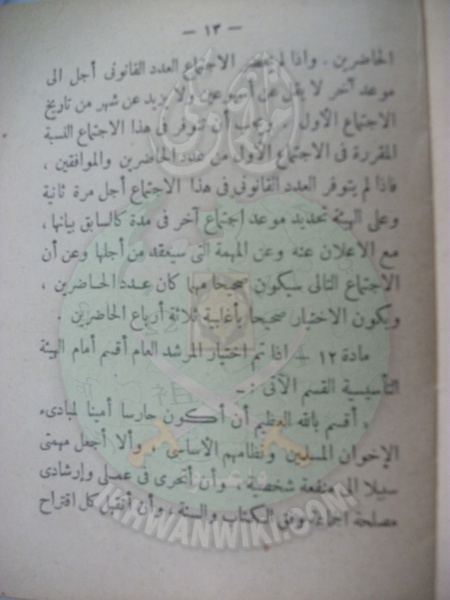 — ١٣ —
الحاضرين . واذا لم يحضر الاجتماع العدد القانونى أجل الى
موعد آخر لا يقل عن أسبوعين ولا يزيد عن شهر من تاريخ
الاجتماع الأول . ويجب أن تتوفر فى هذا الاجتماع النسبة
المقررة فى الاجتماع الأول من عدد الحاضرين والموافقين ،
فاذا لم يتوفر العدد القانونى فى هذا الاجتماع أجل مرة ثانية
وعلى الهيئة تحديد موعد اجتماع آخر فى مدة كالسابق بيانها ،
مع الاعلان عنه وعن المهمة التى سينعقد من أجلها وعن أن
الاجتماع التالى سيكون صحيحا مهما كان عدد الحاضرين ،
ويكون الاختيار صحيحا بأغلبية ثلاثة أرباع الحاضرين .
مادة ١٢ — اذا تم اختيار المرشد العام أقسم أمام الهيئة
التأسيسية القسم الآتى : —
، أقسم بالله العظيم أن أكون حارسا أمينا لمبادىء
الإخوان المسلمين ونظامهم الأساسى ، وألا أجعل مهمتى
سبيلا الى منفعة شخصية ، وأن أتحرى فى عملى وإرشادى
مصلحة الجماعة وفق الكتاب والسنة ، وأن أتقبل كل اقتراح
IKHWANWIKI.COM